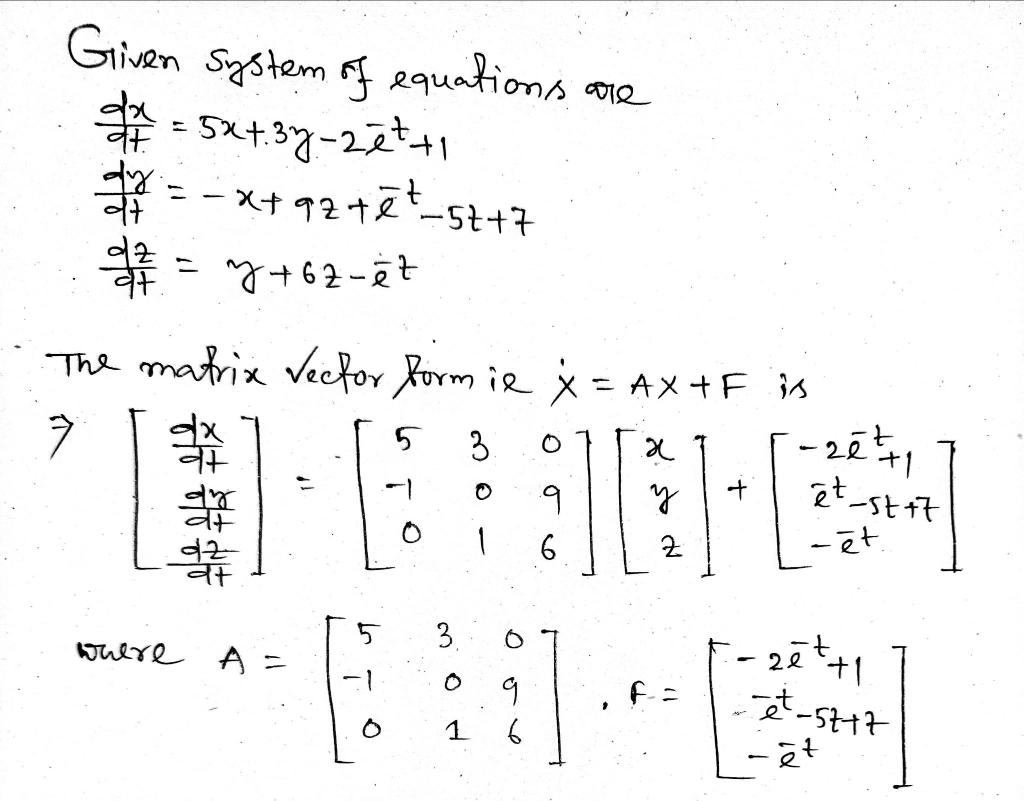 Given system of equations are
dx/dt = 5x+3y-2e^-t+1
dy/dt = -x+9z+e^-t-5t+7
dz/dt = y+6z-e^-t
The matrix vector form ie ẋ = AX+F is
⇒ [dx/dt; dy/dt; dz/dt] = [5 3 0; -1 0 9; 0 1 6] [x; y; z] + [-2e^-t+1; e^-t-5t+7; -e^-t]
where A = [5 3 0; -1 0 9; 0 1 6], F = [-2e^-t+1; -e^-t-5t+7; -e^-t]